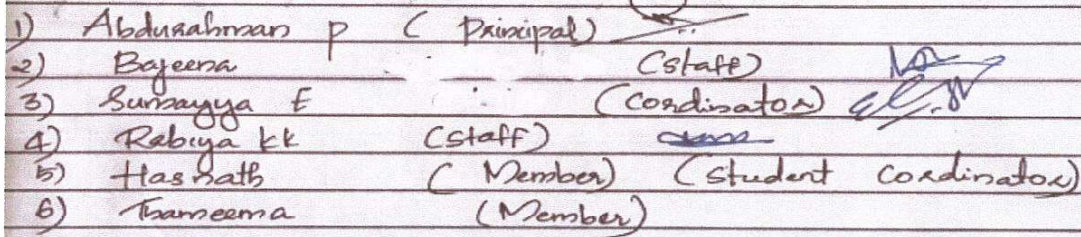 1) Abdurahman P ( Principal)
2) Bajeena (staff)
3) Sumayya E (Cordinator)
4) Rabiya KK (Staff)
5) Hasnath ( Member) (Student Cordinator)
6) Thameema (Member)